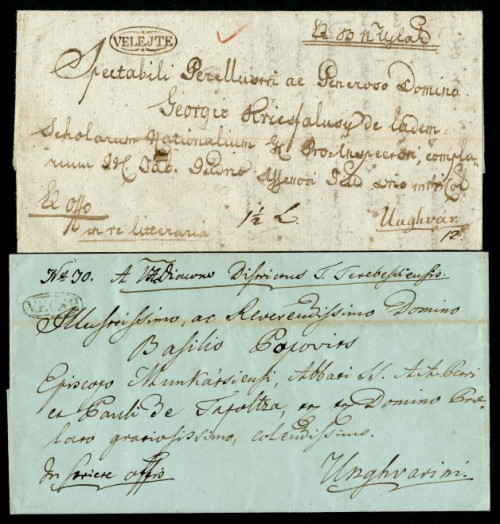 VELEJTE
Spectabili Perillustri ac Generoso Domino
Georgio Kriesfalusy de eadem
Scholarum Nationalium Pro Inspectori, complu
rium Tab. Judriae Assessori
Ex Offo
in re litteraria
1½ L.
Unghvar
12
Nro 30. A V. A. Diacono Districtus T. Terebessiensis.
Illustrissimo, ac Reverendissimo Domino
Basilio Popovits
Episcopo Munkátsiensi, Abbati SS. A.A. Petri
et Pauli De Tapoltza, Domino Prae
lato gratiosissimo, colendissimo.
In serie offio
Unghvarini.